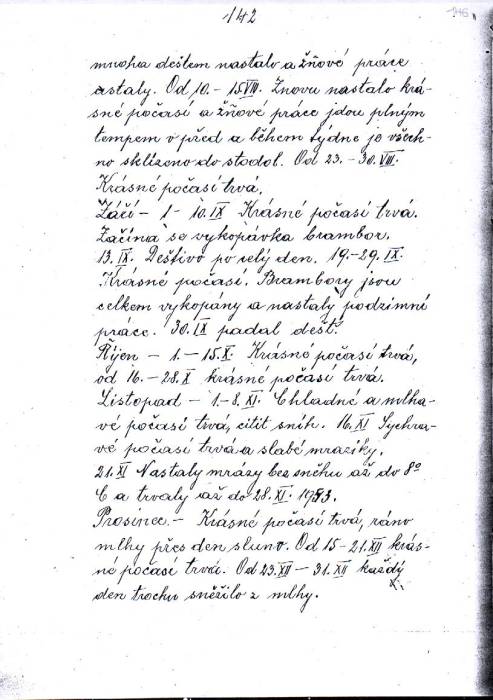 142
mnoha deštem nastalo a žňové práce
ustaly. Od 10. - 15 VIII. Znovu nastalo krá-
sné počasí a žňové práce jdou plným
tempem v před a během týdne je všech-
no sklizeno do stodol. Od 23. - 30. VIII.
Krásné počasí trvá.
Září - 1 - 10. IX Krásné počasí trvá.
Začíná se vykopávka brambor.
13. IX. Deštivo po celý den. 19. - 29. IX.
Krásné počasí. Brambory jsou
celkem vykopány a nastaly podzimní
práce. 30. IX padal déšť.
Říjen - 1. - 15. X. Krásné počasí trvá,
od 16. - 28. X krásné počasí trvá.
Listopad - 1. - 8. XI. Chladné a mlha-
vé počasí trvá, cítit sníh. 16. XI Sychra-
vé počasí trvá a slabé mrazíky.
21. XI Nastaly mrázy bez sněhu až do 8°
C a trvaly až do 28. XI. 1983.
Prosinec. - Krásné počasí trvá, ráno
mlhy přes den sluno. Od 15 - 21. XII krás-
né počasí trvá. Od 23. XII - 31. XII každý
den trochu sněžilo z mlhy.